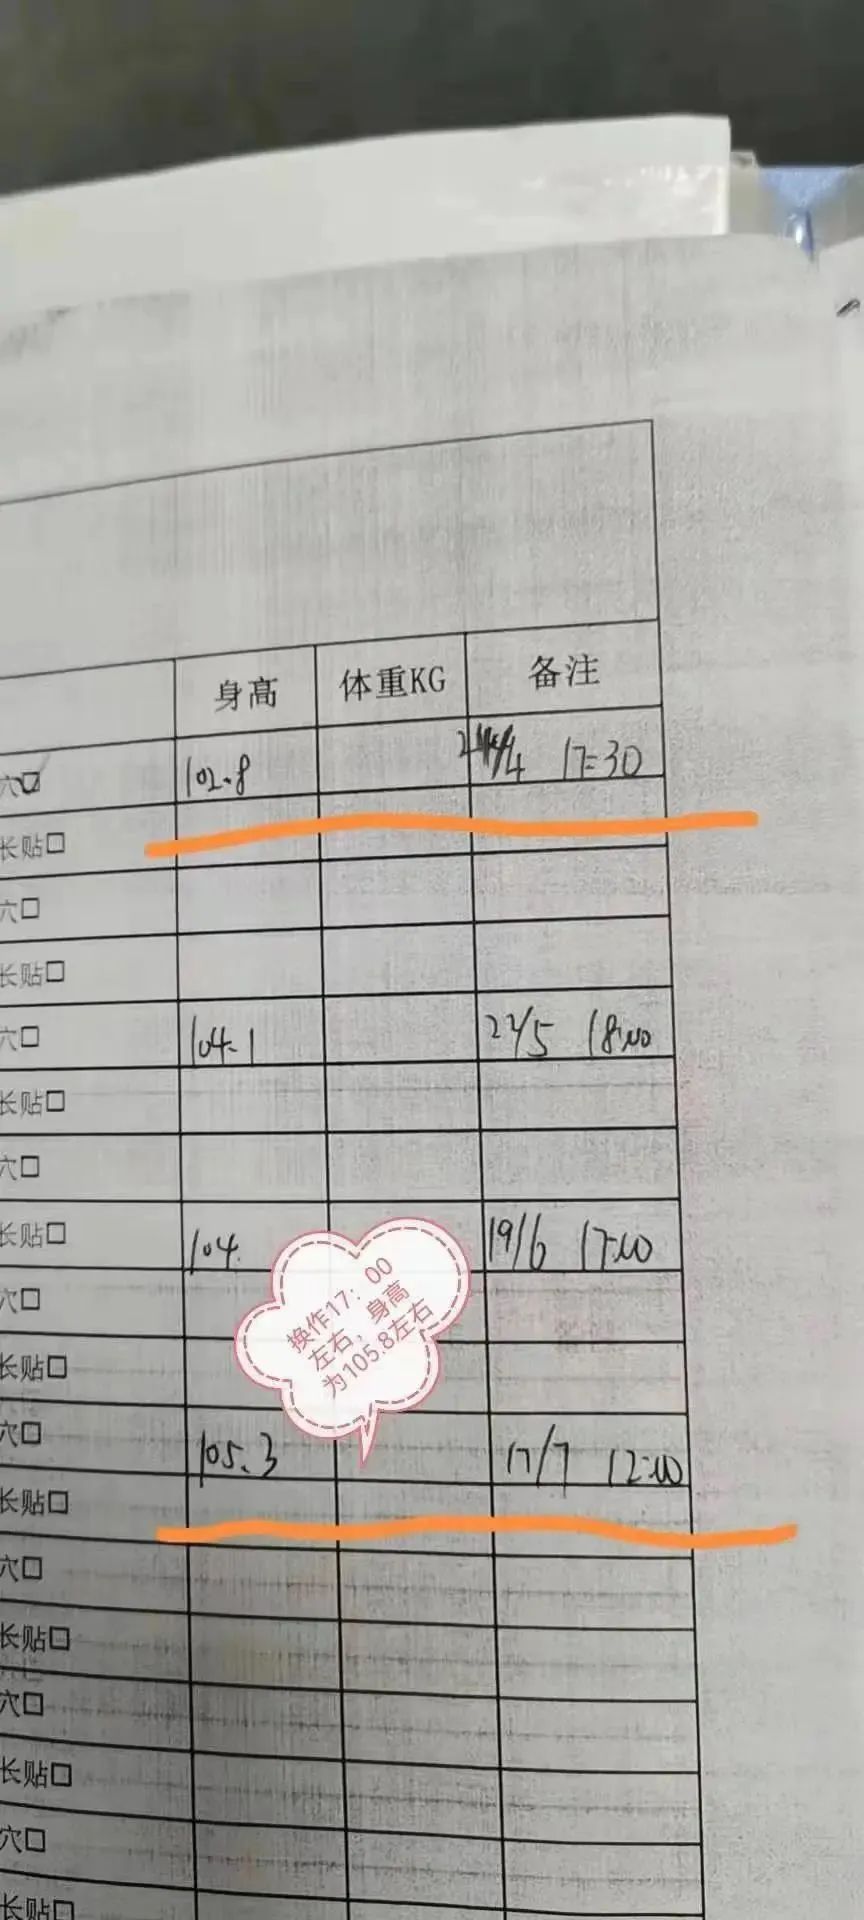 身高 体重KG 备注
穴□ 102.8 24/4 17:30
长贴□
穴□
长贴□
穴□ 104.1 22/5 18:00
长贴□
穴□
长贴□ 104. 19/6 17:00
换作17：00
左右，身高
为105.8左右
穴□
长贴□
穴□ 105.3 17/7 12:00
长贴□
穴□
长贴□
穴□
长贴□
穴□
长贴□